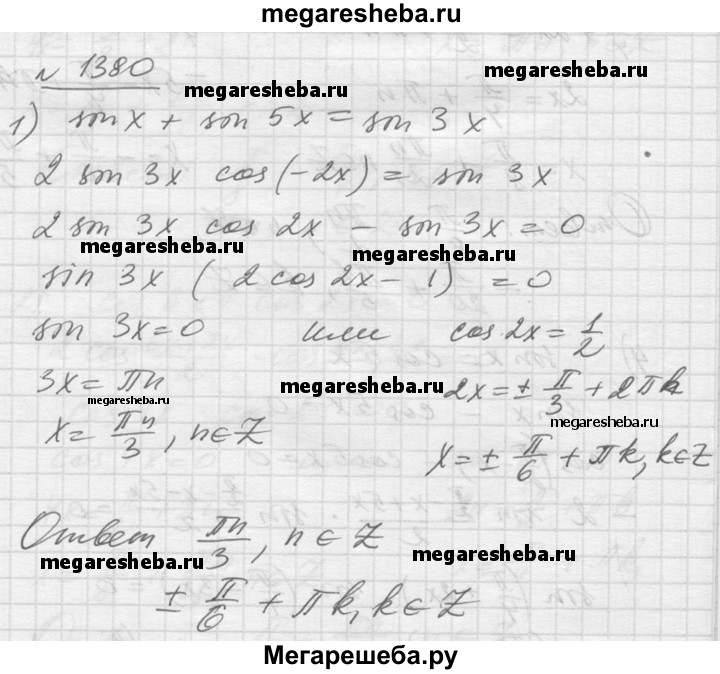 megaresheba.ru
№ 1380
megaresheba.ru
megaresheba.ru
1) sin x + sin 5x = sin 3x
2 sin 3x cos(-2x) = sin 3x
2 sin 3x cos 2x - sin 3x = 0
megaresheba.ru
megaresheba.ru
sin 3x (2 cos 2x - 1) = 0
sin 3x = 0 или cos 2x = 1/2
3x = πn 2x = ± π/3 + 2πk
megaresheba.ru
megaresheba.ru
megaresheba.ru
x = πn/3, n ∈ Z x = ± π/6 + πk, k ∈ Z
Ответ πn/3, n ∈ Z
megaresheba.ru
megaresheba.ru
± π/6 + πk, k ∈ Z
megaresheba.ru
megaresheba.ru
Мегарешеба.ру